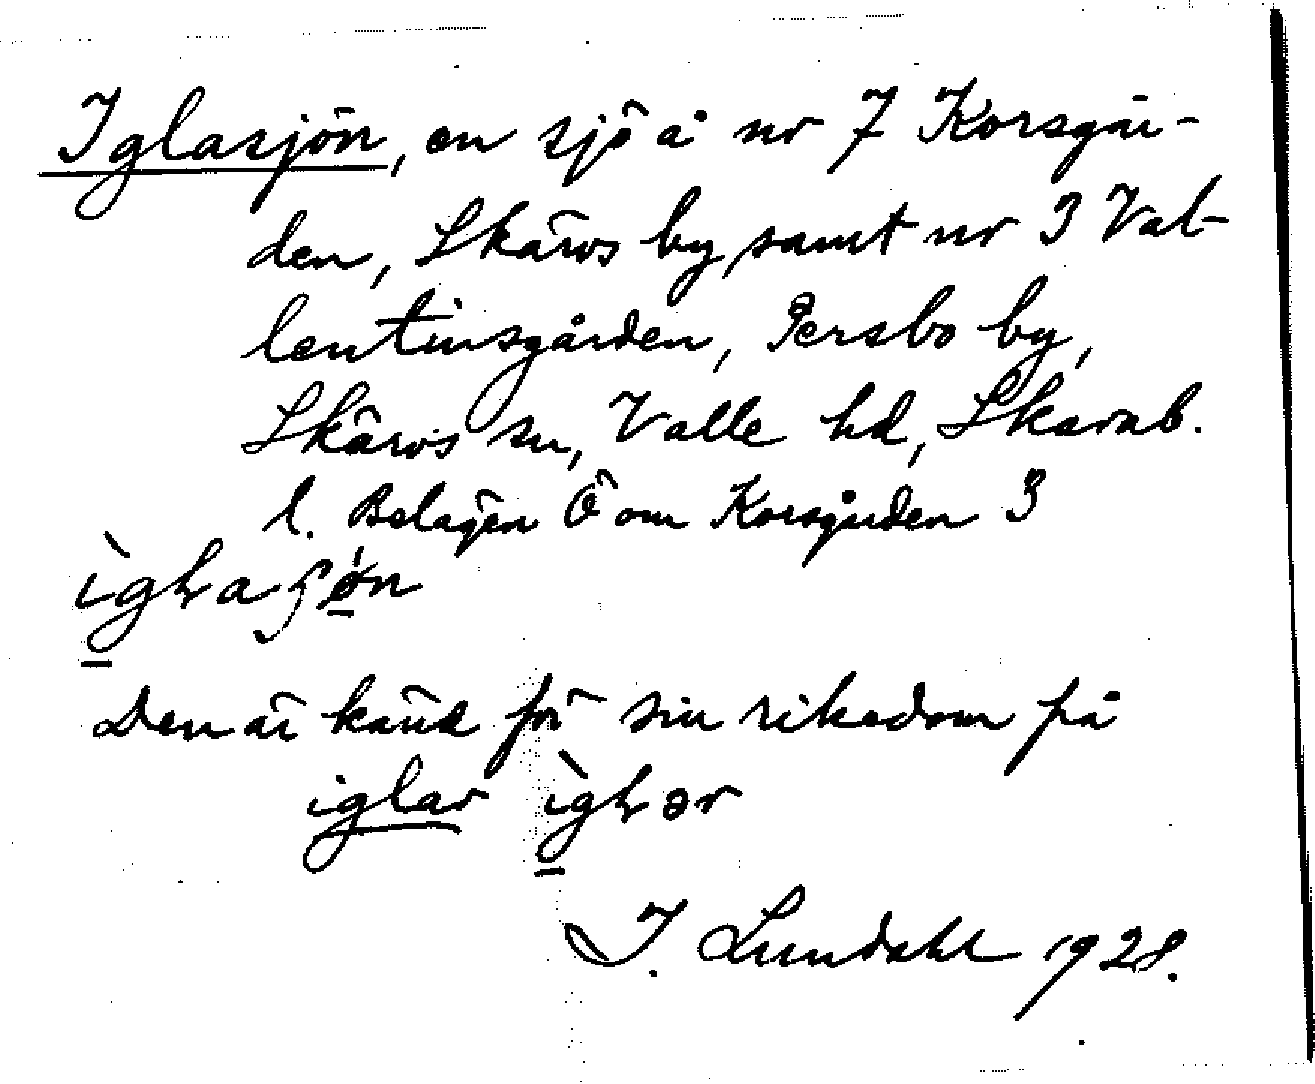 Iglasjön, en sjö å nr 7 Korsgår-
den, Skärvs by, samt nr 3 Val-
lentinsgården, Persbo by,
Skärvs sn, Valle hd, Skarab.
l. Belägen Ö om Korsgården 3
Den är känd för sin rikedom på
iglar
I. Lundahl 1928.